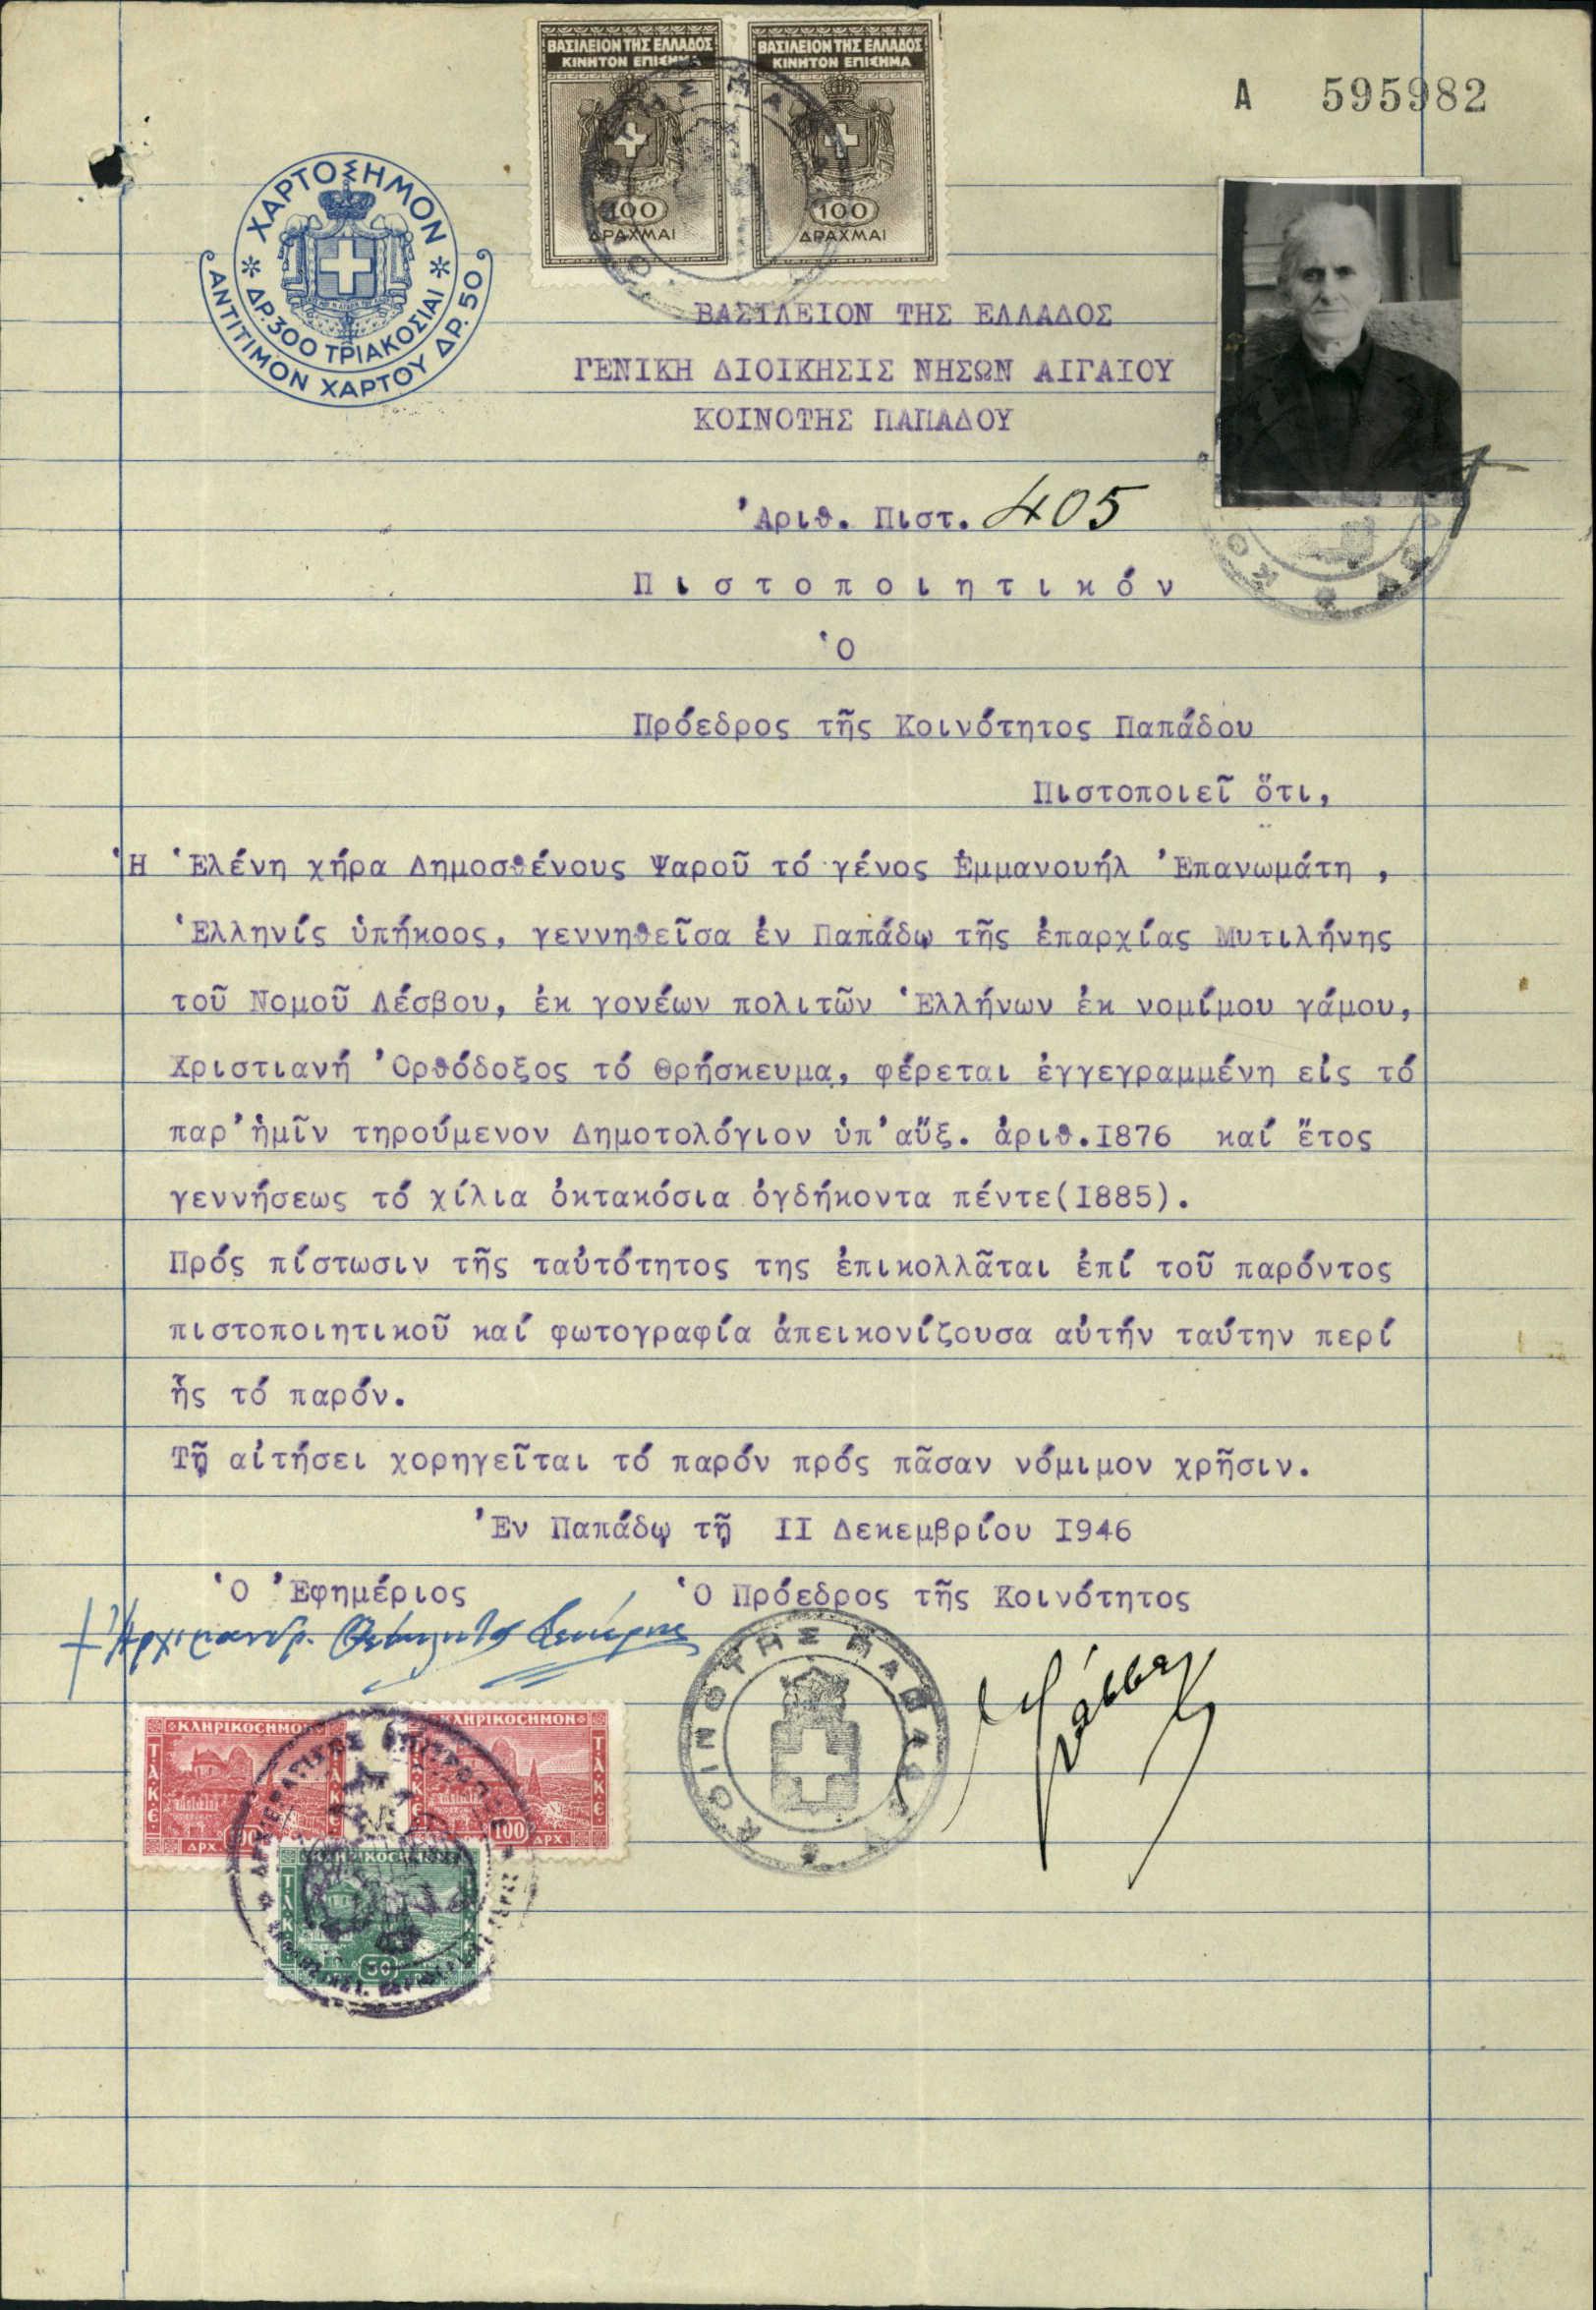 ΒΑΣΙΛΕΙΟΝ ΤΗΣ ΕΛΛΑΔΟΣ
ΚΙΝΗΤΟΝ ΕΠΙΣΗΜΑ
100
ΔΡΑΧΜΑΙ
ΒΑΣΙΛΕΙΟΝ ΤΗΣ ΕΛΛΑΔΟΣ
ΚΙΝΗΤΟΝ ΕΠΙΣΗΜΑ
100
ΔΡΑΧΜΑΙ
Α 595982
ΧΑΡΤΟΣΗΜΟΝ
ΔΡ. 300 ΤΡΙΑΚΟΣΙΑΙ
ΑΝΤΙΤΙΜΟΝ ΧΑΡΤΟΥ ΔΡ. 50
ΒΑΣΙΛΕΙΟΝ ΤΗΣ ΕΛΛΑΔΟΣ
ΓΕΝΙΚΗ ΔΙΟΙΚΗΣΙΣ ΝΗΣΩΝ ΑΙΓΑΙΟΥ
ΚΟΙΝΟΤΗΣ ΠΑΠΑΔΟΥ
Ἀριθ. Πιστ. 405
Π ι σ τ ο π ο ι η τ ι κ ό ν
Ὁ
Πρόεδρος τῆς Κοινότητος Παπάδου
Πιστοποιεῖ ὅτι,
Ἡ Ἑλένη χήρα Δημοσθένους Ψαροῦ τό γένος Ἐμμανουήλ Ἐπανωμάτη ,
Ἑλληνίς ὑπήκοος, γεννηθεῖσα ἐν Παπάδῳ τῆς ἐπαρχίας Μυτιλήνης
τοῦ Νομοῦ Λέσβου, ἐκ γονέων πολιτῶν Ἑλλήνων ἐκ νομίμου γάμου,
Χριστιανή Ὀρθόδοξος τό θρήσκευμα, φέρεται ἐγγεγραμμένη εἰς τό
παρ' ἡμῖν τηρούμενον Δημοτολόγιον ὑπ' αὔξ. ἀριθ. I876 καί ἔτος
γεννήσεως τό χίλια ὀκτακόσια ὀγδήκοντα πέντε(I885).
Πρός πίστωσιν τῆς ταὐτότητος της ἐπικολλᾶται ἐπί τοῦ παρόντος
πιστοποιητικοῦ καί φωτογραφία ἀπεικονίζουσα αὐτήν ταύτην περί
ἧς τό παρόν.
Τῇ αἰτήσει χορηγεῖται τό παρόν πρός πᾶσαν νόμιμον χρῆσιν.
Ἐν Παπάδῳ τῇ II Δεκεμβρίου I946
Ὁ Ἐφημέριος Ὁ Πρόεδρος τῆς Κοινότητος
ΚΟΙΝΟΤΗΣ ΠΑΠΑΔΟΥ
ΚΛΗΡΙΚΟΣΗΜΟΝ
Τ.Α.Κ.Ε.
100
ΔΡΧ.
ΚΛΗΡΙΚΟΣΗΜΟΝ
Τ.Α.Κ.Ε.
100
ΔΡΧ.
Τ.Α.Κ.Ε.
50